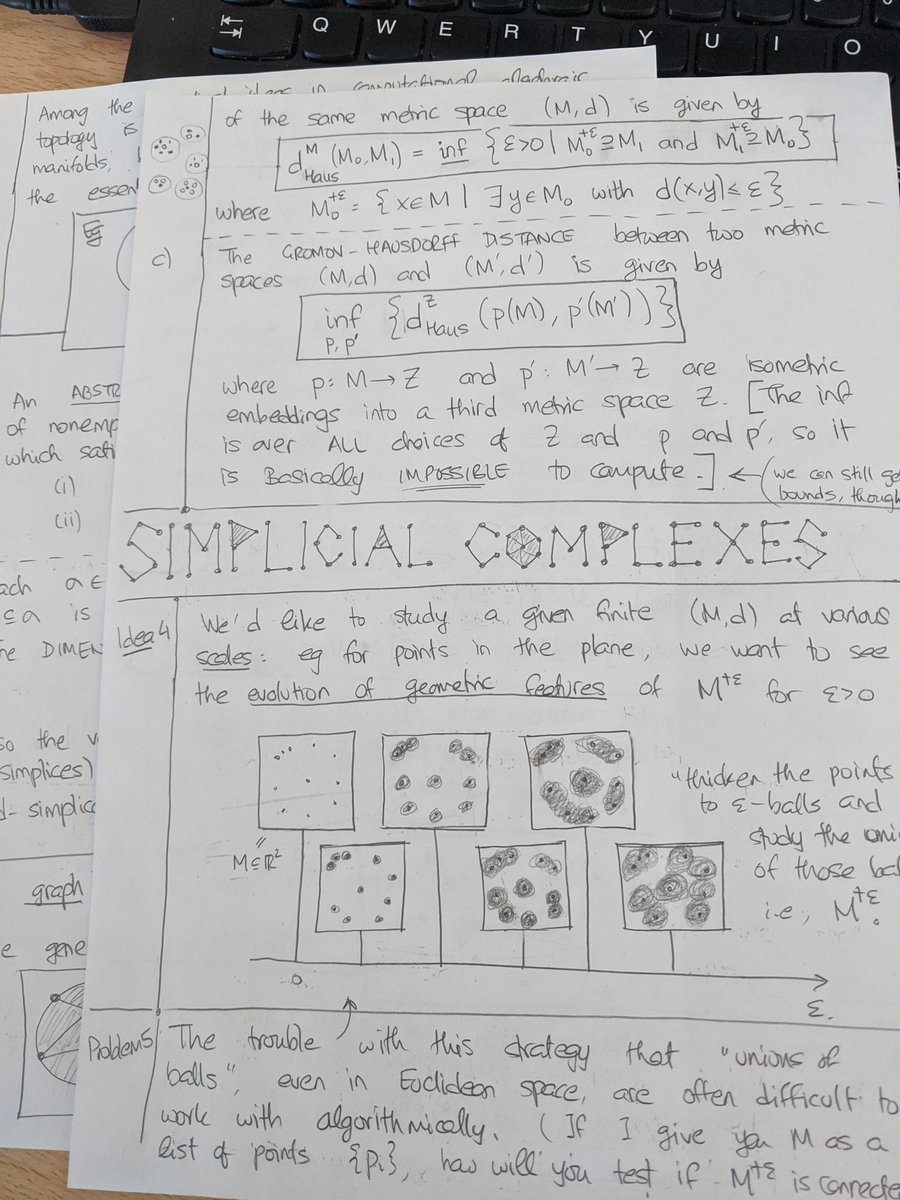 Q W E R T Y U I O
ideas in computational algebraic
Among the
topology is
manifolds,
the essen
An ABSTR
of nonemp
which sati
(i)
(ii)
ach a ∈
⊆ a is
he DIMEN
so the v
simplices)
d-simplic
graph
e gene
of the same metric space (M,d) is given by
d^M_Haus (M₀, M₁) = inf {ε>0 | M₀^{+ε} ⊇ M₁ and M₁^{+ε} ⊇ M₀}
where M₀^{+ε} = {x∈M | ∃y∈M₀ with d(x,y) ≤ ε}
c) The GROMOV-HAUSDORFF DISTANCE between two metric
spaces (M,d) and (M',d') is given by
inf {d^Z_Haus (p(M), p'(M'))}
p,p'
where p: M→Z and p': M'→Z are isometric
embeddings into a third metric space Z. [The inf
is over ALL choices of Z and p and p', so it
is Basically IMPOSSIBLE to compute.] ← (we can still ge
bounds, though
SIMPLICIAL COMPLEXES
Idea 4 We'd like to study a given finite (M,d) at various
scales: eg for points in the plane, we want to see
the evolution of geometric features of M^{+ε} for ε>0
"thicken the points
to ε-balls and
study the uni
of those bal
i.e., M^{+ε}.
M∈ℝ²
0
ε.
Problem 5 The trouble with this strategy that "unions of
balls", even in Euclidean space, are often difficult to
work with algorithmically. (If I give you M as a
list of points {pi}, how will you test if M^{+ε} is connecte